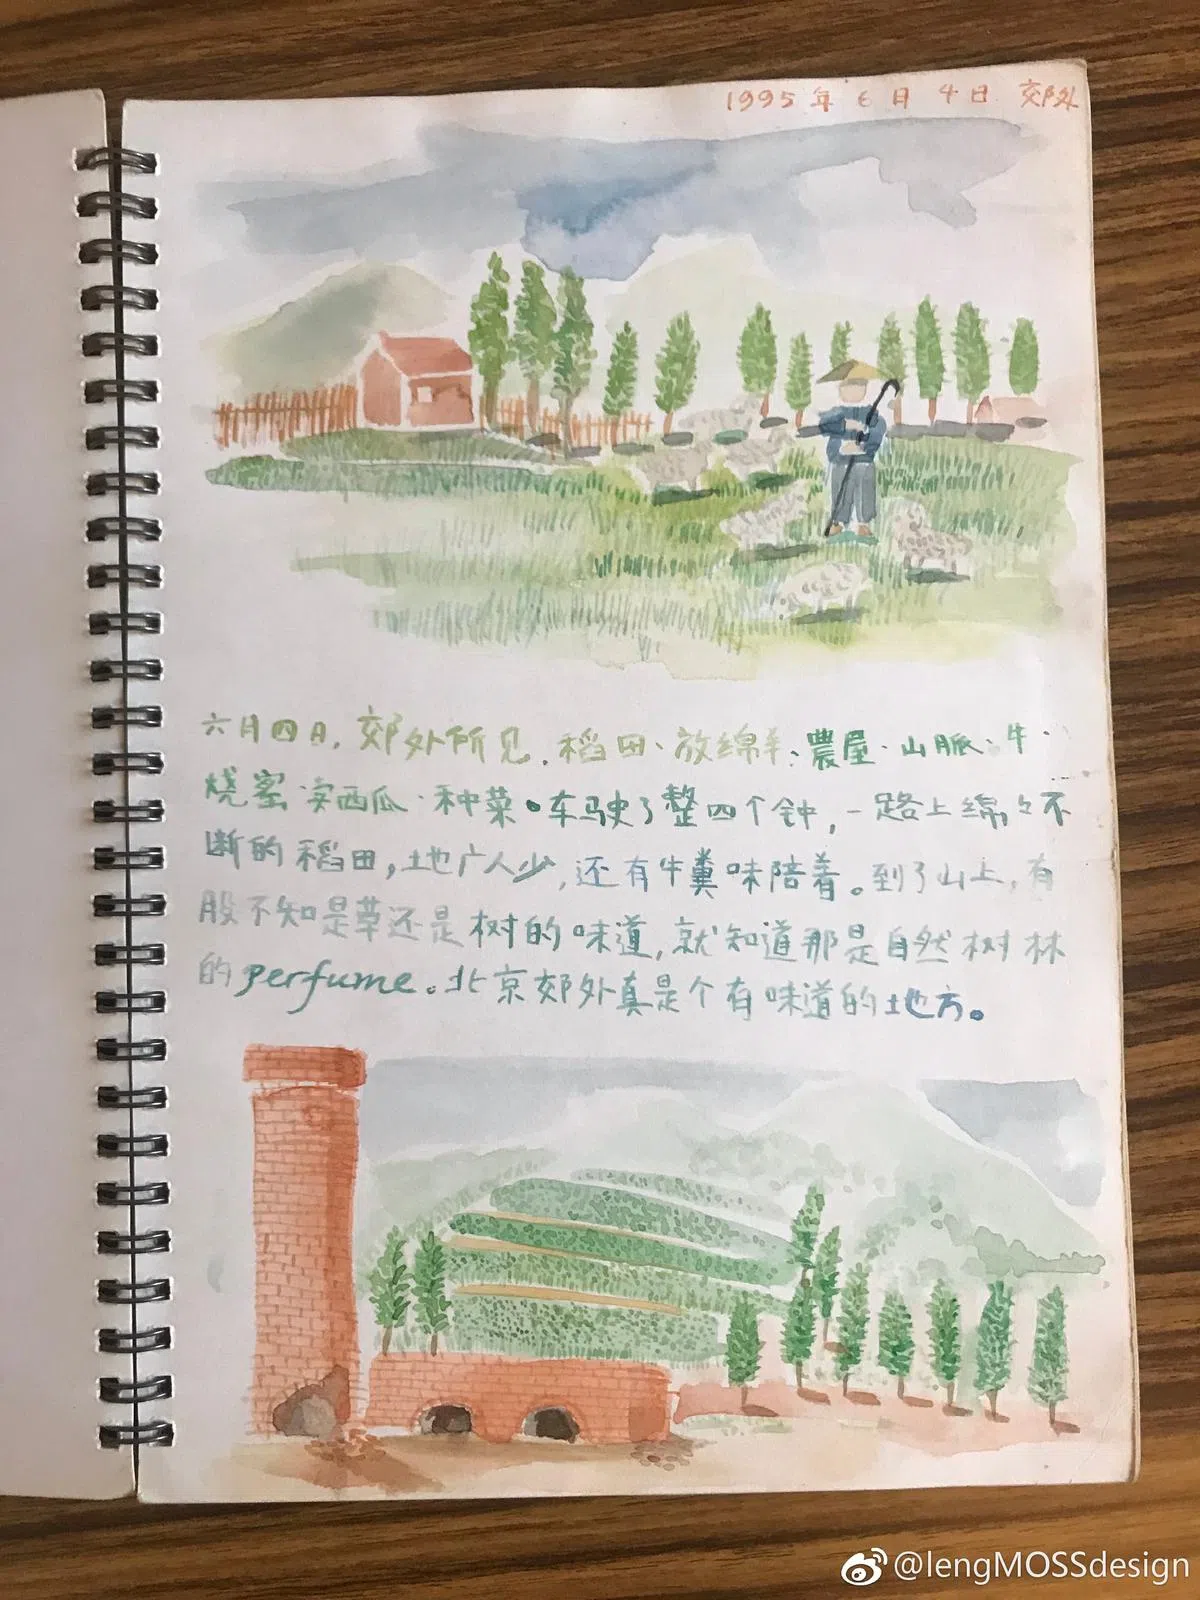 1995年6月4日 郊外
六月四日,郊外所见.稻田·放绵羊·農屋·山脈·牛·
烧窑·卖西瓜·种菜。车驶了整四个钟,一路上绵々不
断的稻田,土地广人少,还有牛糞味陪着。到了山上,有
股不知是草还是树的味道,就知道那是自然树林
的perfume。北京郊外真是个有味道的土地方。
@lengMOSSdesign